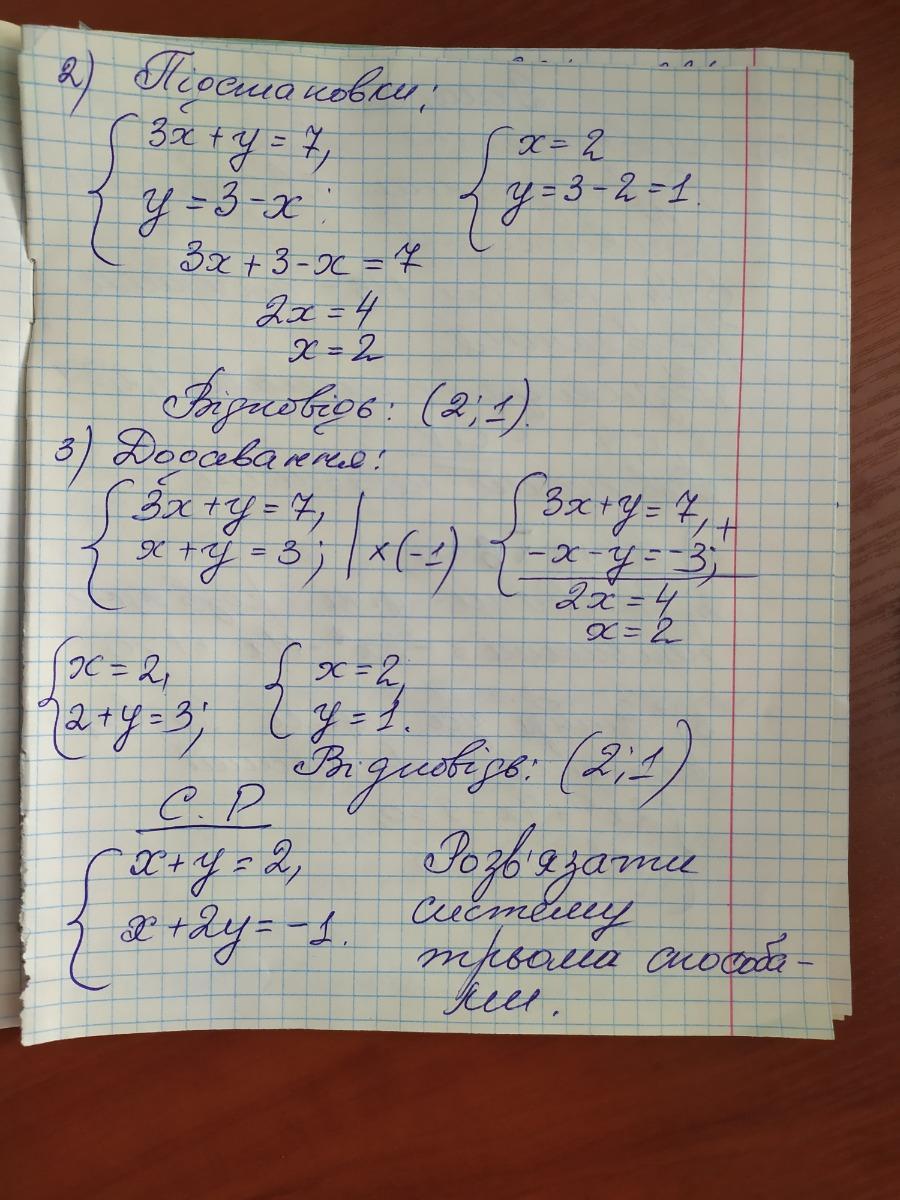 2) Підстановки:
{ 3x + y = 7,
y = 3 - x;
3x + 3 - x = 7
2x = 4
x = 2
{ x = 2
y = 3 - 2 = 1.
Відповідь: (2; 1).
3) Додавання:
{ 3x + y = 7,
x + y = 3; | x (-1)
{ 3x + y = 7, +
-x - y = -3;
2x = 4
x = 2
{ x = 2,
2 + y = 3;
{ x = 2,
y = 1.
Відповідь: (2; 1)
С. Р
{ x + y = 2,
x + 2y = -1.
Розв'язати
систему
трьома способа-
ми.